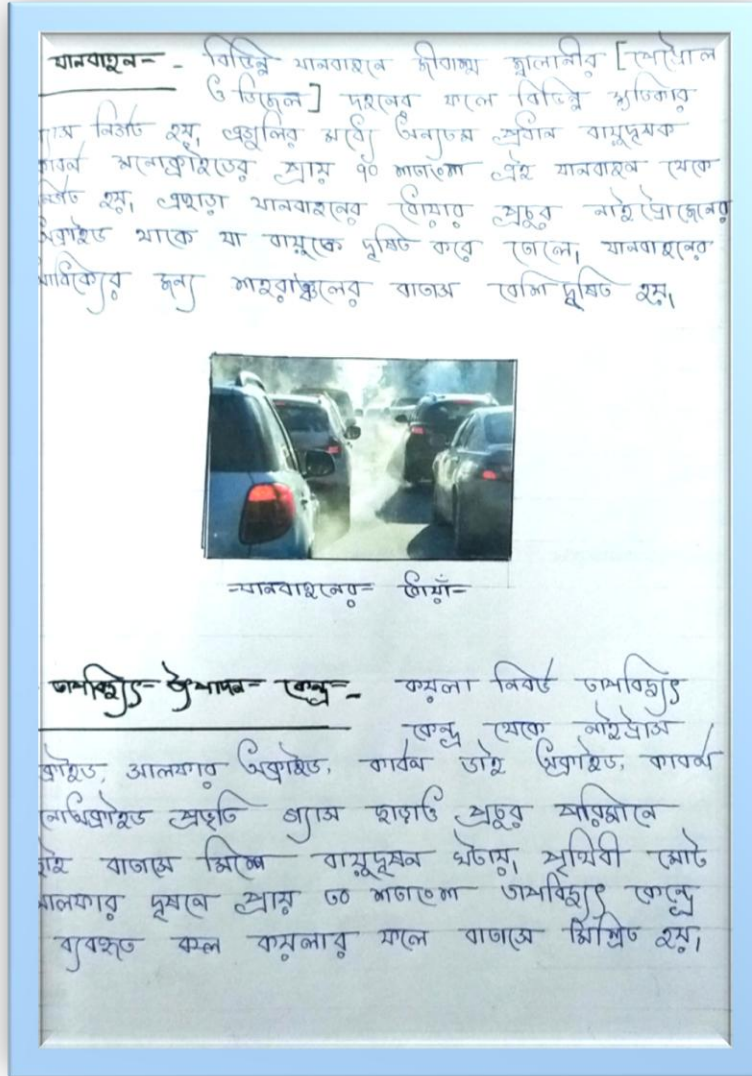 যানবাহন - বিভিন্ন যানবাহনে জীবাশ্ম জ্বালানীর [পেট্রোল
ও ডিজেল] দহনের ফলে বিভিন্ন ক্ষতিকার
গ্যাস নির্গত হয়, এগুলির মধ্যে অন্যতম প্রধান বায়ুদূষক
কার্বন মনোক্সাইডের প্রায় ৭০ শতাংশ এই যানবাহন থেকে
নির্গত হয়, এছাড়া যানবাহনের ধোঁয়ার প্রচুর নাইট্রোজেনের
অক্সাইড থাকে যা বায়ুকে দূষিত করে তোলে, যানবাহনের
আধিক্যের জন্য শহরাঞ্চলের বাতাস বেশি দূষিত হয়,
যানবাহনের ধোঁয়া
তাপবিদ্যুৎ উৎপাদন কেন্দ্র - কয়লা নির্ভর তাপবিদ্যুৎ
কেন্দ্র থেকে নাইট্রাস
ক্সাইড, সালফার অক্সাইড, কার্বন ডাই অক্সাইড, কার্বন
নোঅক্সাইড প্রভৃতি গ্যাস ছাড়াও প্রচুর পরিমানে
ছাই বাতাসে মিশে বায়ুদূষন ঘটায়, পৃথিবী মোট
সালফার দূষনে প্রায় ৩০ শতাংশ তাপবিদ্যুৎ কেন্দ্রে
ব্যবহৃত কয়লার ফলে বাতাসে মিশ্রিত হয়,